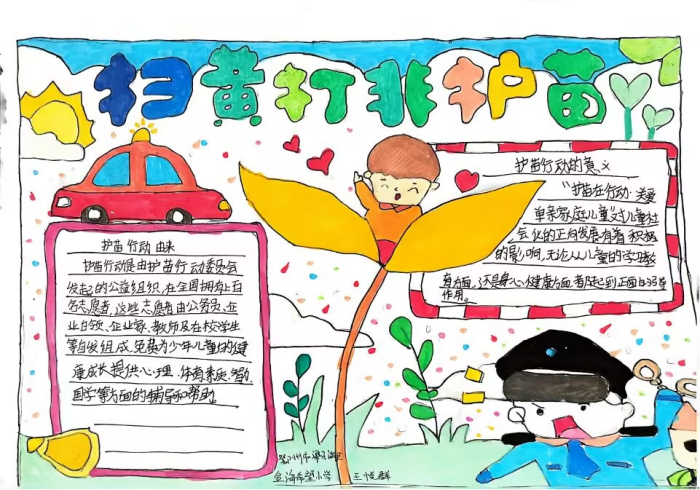 扫黄打非护苗
护苗行动由来
护苗行动是由护苗行动委员会
发起的公益组织,在全国拥有上百
名志愿者,这些志愿者由公务员、企
业白领、企业家、教师及在校学生
等自发组成,免费为少年儿童的健
康成长提供心理、体育素质、智力、
国学等方面的辅导和帮助。
护苗行动的意义
"护苗在行动·关爱
单亲家庭儿童"对儿童社
会化的正向发展有着积极
的影响,无论从儿童的学习教
育方面,还是身心健康方面,都起到正面的引导
作用。
金海希望小学 王恺群